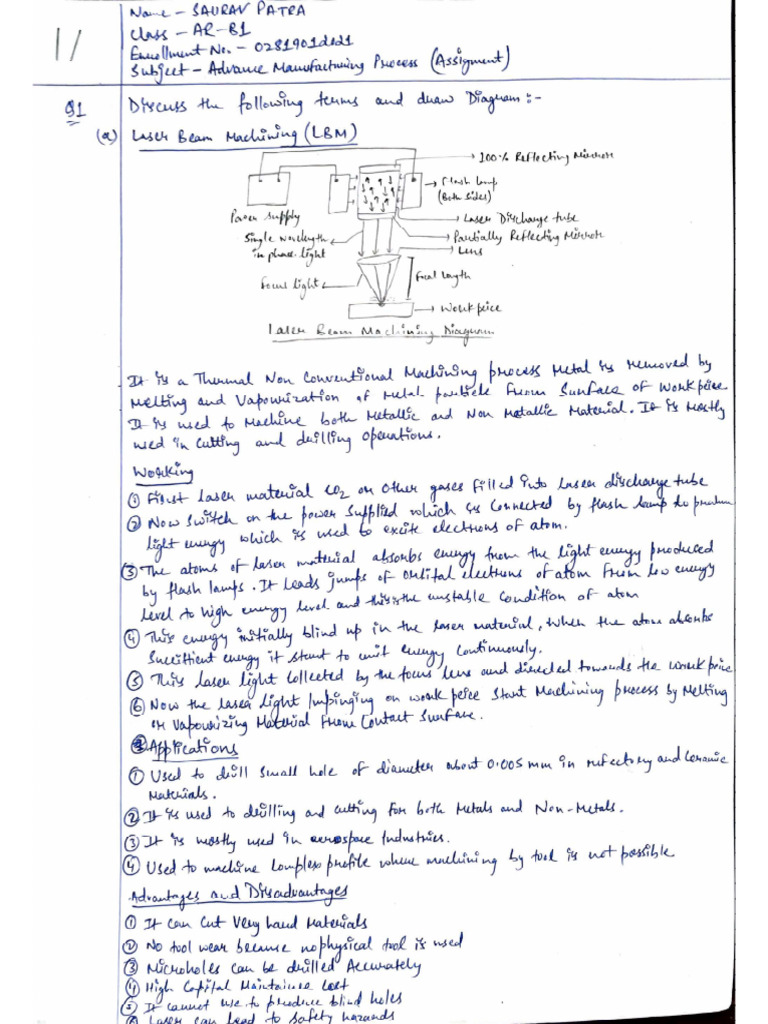 11
Name - SAURAV PATRA
Class - AR-B1
Enrollment No. - 0281901
Subject - Advance Manufacturing Process (Assigment)
Q1 Discuss the following terms and draw Diagram:-
(a) Laser Beam Machining (LBM)
100% Reflecting Mirrore
Flash lamp
(Both Sides)
Power supply
Laser Discharge tube
Single wavelength
Partially Reflecting Mirrore
in phase light
Lens
Focus light
Focal length
Workpeice
Laser Beam Machining Diagram
It is a Thermal Non Conventional Machining process Metal is removed by
Melting and Vapourization of Metal particle from Surface of Workpeice.
It is used to Machine both Metallic and Non Metallic Material. It is Mostly
used in Cutting and drilling Operations.
Working
① First laser material CO2 or other gases filled into laser discharge tube
② Now Switch on the power supplied which is connected by flash lamp to produce
light energy which is used to excite electrons of atom.
③ The atoms of laser material absorbs energy from the light energy produced
by flash lamps. It leads jumps of orbital electrons of atom from low energy
level to high energy level and this is the unstable condition of atom
④ This energy initially blind up in the laser material, when the atom absorbs
Sufficient energy it start to emit energy continuously.
⑤ This laser light collected by the focus lens and directed towards the workpeice
⑥ Now the laser light Impinging on work peice Start Machining process by Melting
or Vapourizing Material from Contact Surface.
Applications
① Used to drill small hole of diameter about 0.005 mm in refectory and Ceramic
Materials.
② It is used to drilling and cutting for both Metals and Non-Metals.
③ It is mostly used in aerospace Industries.
④ Used to machine complex profile where machining by tool is not possible
Advantages and Disadvantages
① It can cut Very hard Materials
② No tool wear because no physical tool is used
③ Microholes can be drilled Accurately
④ High Capital Maintaince Cost
⑤ It cannot use to produce blind holes
⑥ Laser can lead to safety hazards